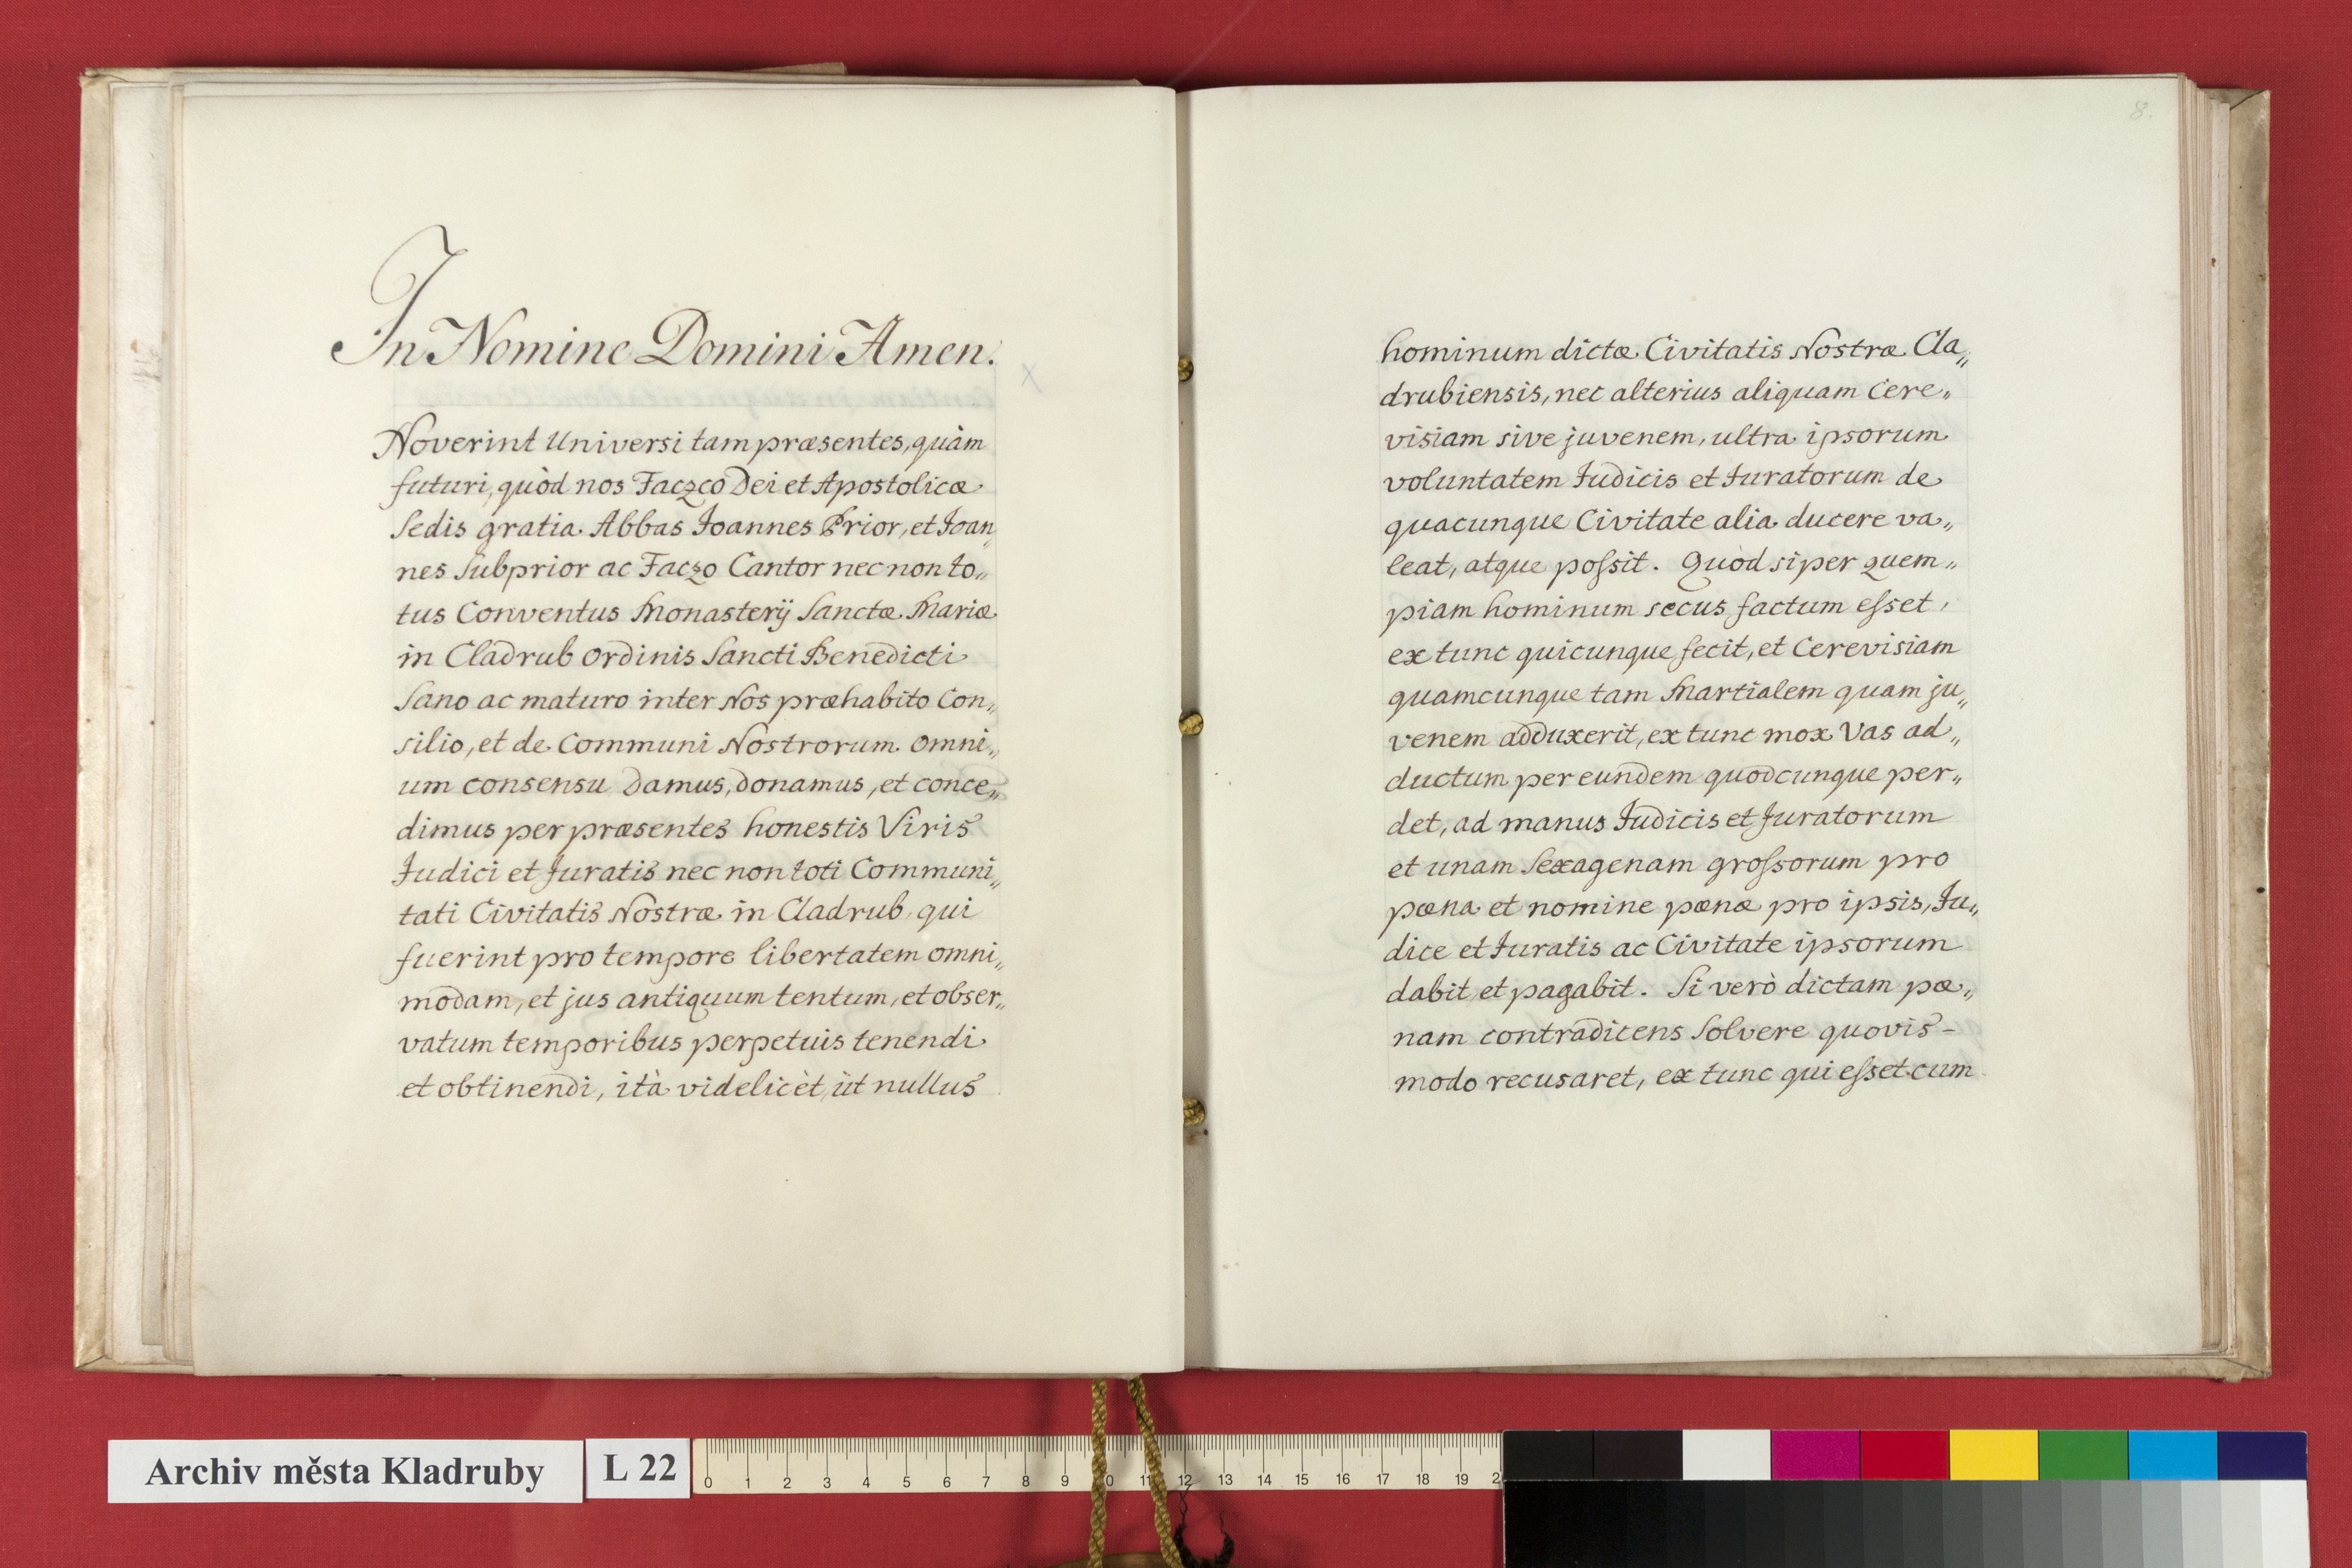 In Nomine Domini Amen.
Noverint Universi tam præsentes, quàm
futuri, quòd nos Faczco Dei et Apostolicæ
Sedis gratia Abbas Joannes Prior, et Joan„
nes Subprior ac Faczo Cantor nec non to„
tus Conventus Monasterij Sanctæ Mariæ
in Cladrub Ordinis Sancti Benedicti
Sano ac maturo inter Nos præhabito Con„
silio, et de Communi Nostrorum omni„
um consensu Damus, donamus, et conce„
dimus per præsentes honestis Viris
Judici et Juratis nec non toti Communi„
tati Civitatis Nostræ in Cladrub, qui
fuerint pro tempore libertatem omni„
modam, et jus antiquum tentum, et obser„
vatum temporibus perpetuis tenendi
et obtinendi, ità videlicèt, ùt nullus
8.
hominum dictæ Civitatis Nostræ Cla„
drubiensis, nec alterius aliquam Cere„
visiam sive juvenem, ultra ipsorum
voluntatem Judicis et Juratorum de
quacunque Civitate alia ducere va„
leat, atque poſsit. Quòd si per quem„
piam hominum secus factum eſset,
ex tunc quicunque fecit, et Cerevisiam
quamcunque tam Martialem quam ju„
venem adduxerit, ex tunc mox Vas ad„
ductum per eundem quodcunque per„
det, ad manus Judicis et Juratorum
et unam Sexagenam groſsorum pro
pœna et nomine pœnæ pro ipsis, Ju„
dice et Juratis ac Civitate ipsorum
dabit et pagabit. Si verò dictam pœ„
nam contradicens Solvere quovis-
modo recusaret, ex tunc qui eſset cum
Archiv města Kladruby
L 22
0 1 2 3 4 5 6 7 8 9 10 11 12 13 14 15 16 17 18 19 2